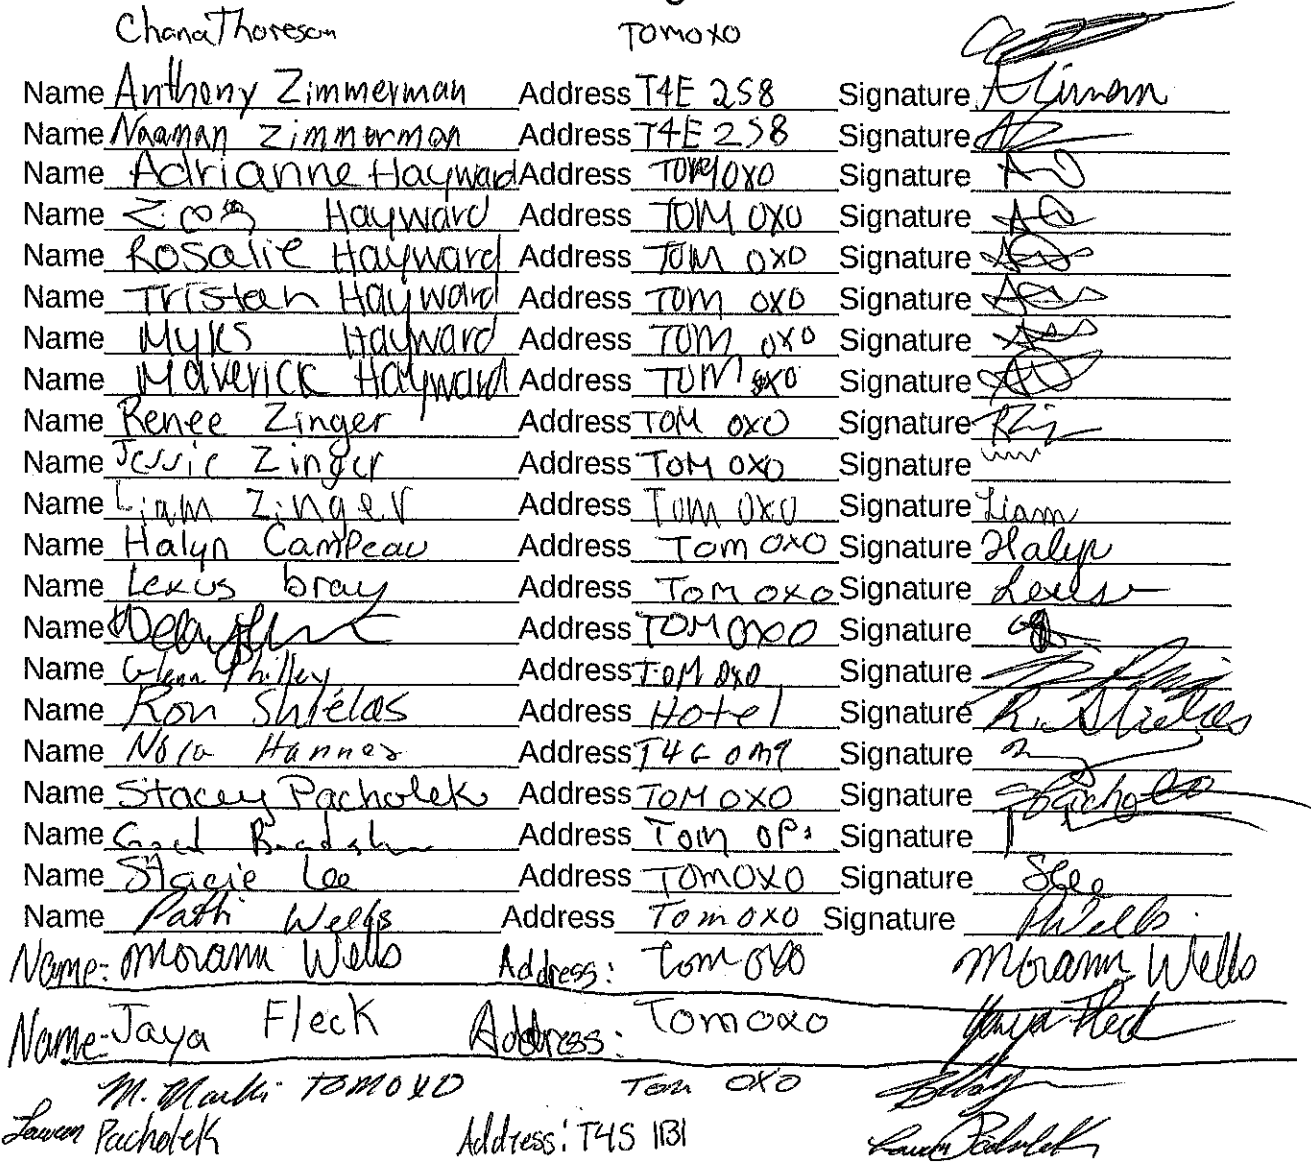 Chana Thoreson TOMOXO
Name Anthony Zimmerman Address T4E 2S8 Signature
Name Naaman Zimmerman Address T4E 2S8 Signature
Name Adrianne Hayward Address TOM OXO Signature
Name Hayward Address TOM OXO Signature
Name Rosalie Hayward Address TOM OXO Signature
Name Tristan Hayward Address TOM OXO Signature
Name Myks Hayward Address TOM OXO Signature
Name Maverick Hayward Address TOM OXO Signature
Name Renee Zinger Address TOM OXO Signature
Name Jessie Zinger Address TOM OXO Signature
Name Liam Zinger Address TOM OXO Signature Liam
Name Halyn Campeau Address Tom OXO Signature Halyn
Name Lexus bray Address TOM OXO Signature
Name Address TOM OXO Signature
Name Glenn Philley Address TOM OXO Signature
Name Ron Shields Address Hotel Signature R. Shields
Name Address T4G Signature
Name Stacey Pacholek Address TOM OXO Signature
Name Address Tom Signature
Name Stacie Lee Address TOMOXO Signature SLee
Name Patti Wells Address Tomoxo Signature PWells
Name: Morann Wells Address: Tom OXO Morann Wells
Name: Jaya Fleck Address: Tomoxo Jaya Fleck
M. TOMOXO Tom OXO
Pacholek Address: T4S 1B1 Pacholek